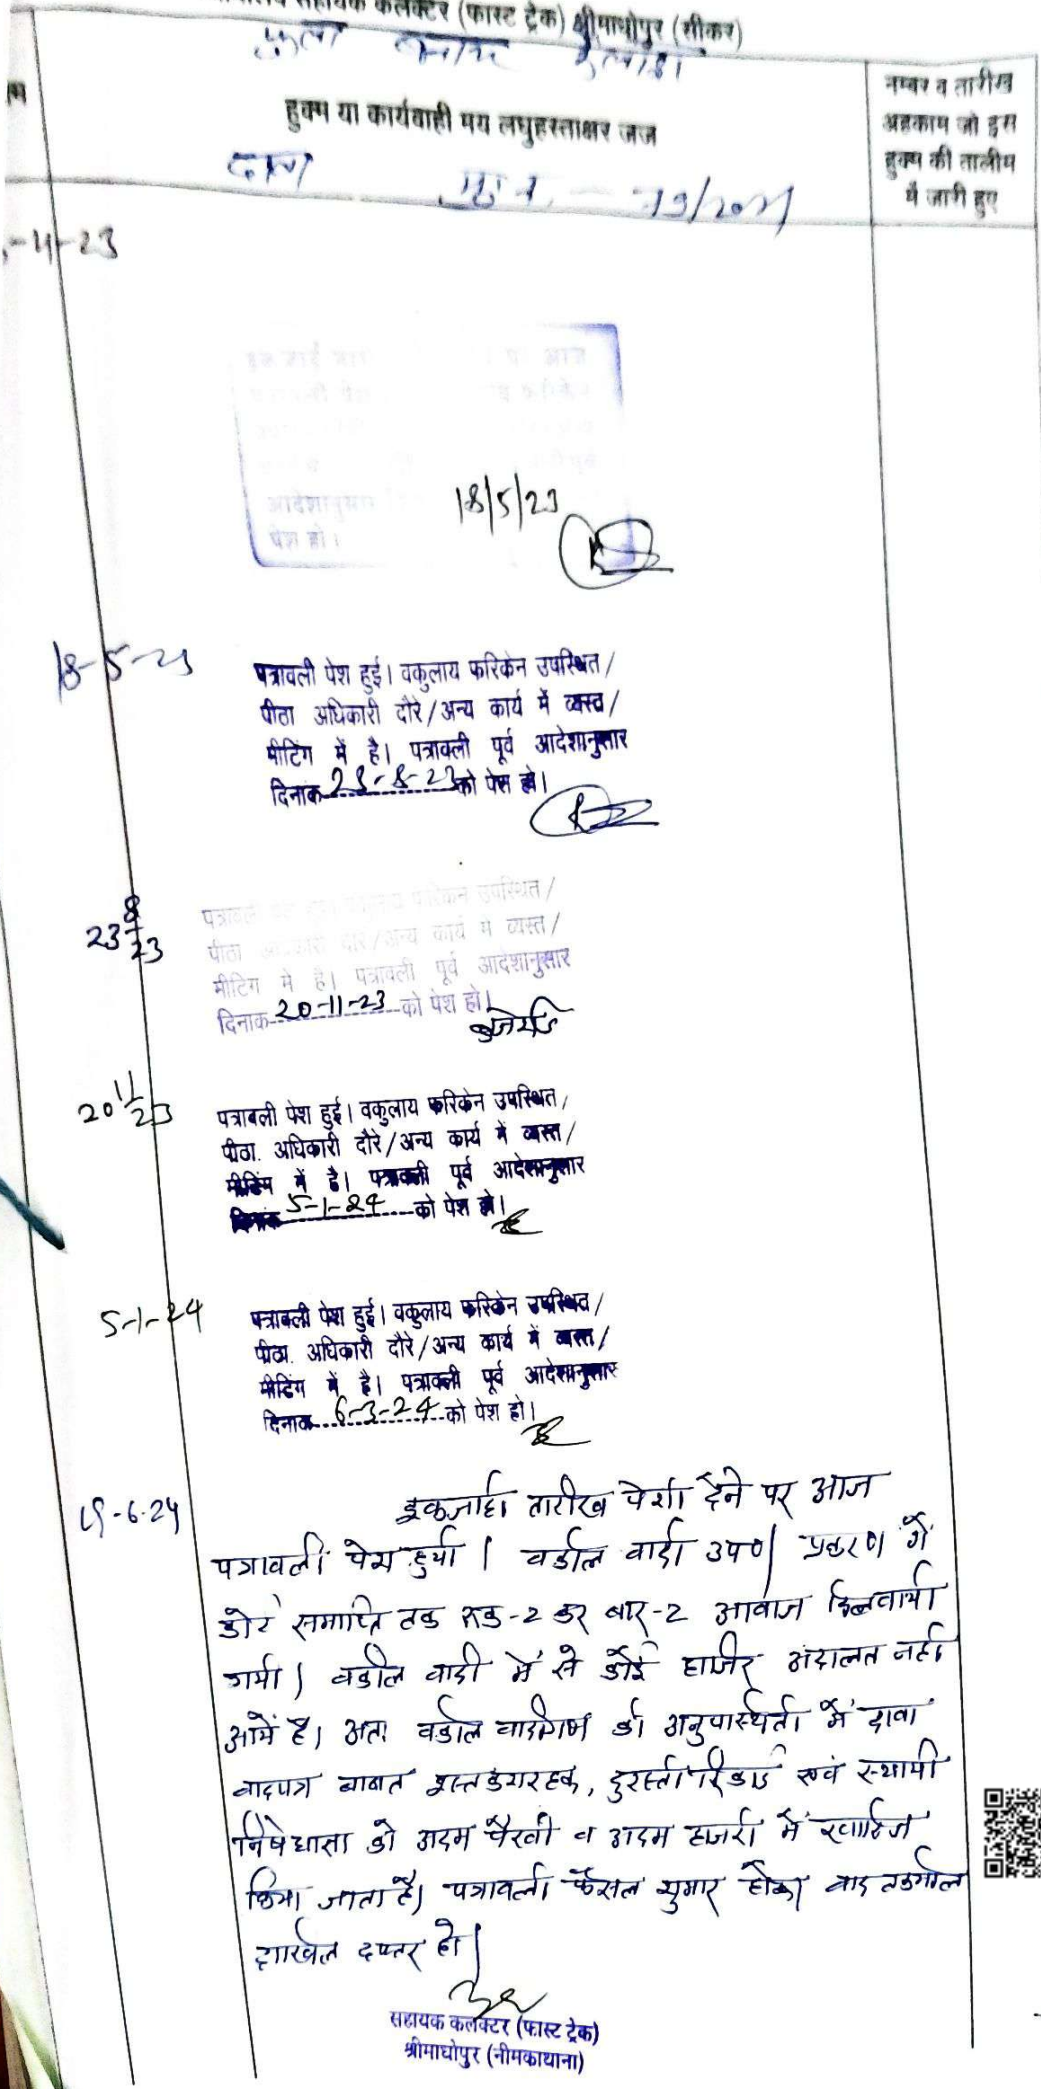 सहायक कलक्टर (फास्ट ट्रेक) श्रीमाधोपुर (सीकर)
हुक्म या कार्यवाही मय लघुहस्ताक्षर जज
नम्बर व तारीख
अहकाम जो इस
हुक्म की तालीम
में जारी हुए
दावा
-4-23
आज
आदेशानुसार
पेश हो।
18/5/23
18-5-23
पत्रावली पेश हुई। वकुलाय फरिकेन उपस्थित/
पीठा अधिकारी दौरे/अन्य कार्य में व्यस्त/
मीटिंग में है। पत्रावली पूर्व आदेशानुसार
दिनांक 23-8-23 को पेश हो।
23 8/23
पत्रावली पेश हुई। वकुलाय फरिकेन उपस्थित/
पीठा अधिकारी दौरे/अन्य कार्य में व्यस्त/
मीटिंग में है। पत्रावली पूर्व आदेशानुसार
दिनाक 20-11-23 को पेश हो।
20 11/23
पत्रावली पेश हुई। वकुलाय फरिकेन उपस्थित/
पीठा. अधिकारी दौरे/अन्य कार्य में व्यस्त/
मीटिंग में है। पत्रावली पूर्व आदेशानुसार
दिनांक 5-1-24 को पेश हो।
5-1-24
पत्रावली पेश हुई। वकुलाय फरिकेन उपस्थित/
पीठा. अधिकारी दौरे/अन्य कार्य में व्यस्त/
मीटिंग में है। पत्रावली पूर्व आदेशानुसार
दिनाक 6-3-24 को पेश हो।
-6-24
तारीख पेशी देने पर आज
पत्रावली पेश हुयी। वकील वादी उप०। प्रकरण में
कोर्ट समाप्ति तक रूक-2 कर बार-2 आवाज दिलवायी
गयी। वकील वादी में से कोई हाजिर अदालत नहीं
आये है। अतः वकील वादीगण की अनुपस्थिती में दावा
वादपत्र बाबत इस्तकरारहक, दुरस्ती रिकार्ड एवं स्थायी
निषेधाज्ञा को अदम पैरवी व अदम हाजरी में खारिज
किया जाता है। पत्रावली फैसल शुमार होकर बाद तकमील
दाखिल दफ्तर हो।
सहायक कलक्टर (फास्ट ट्रेक)
श्रीमाधोपुर (नीमकाथाना)